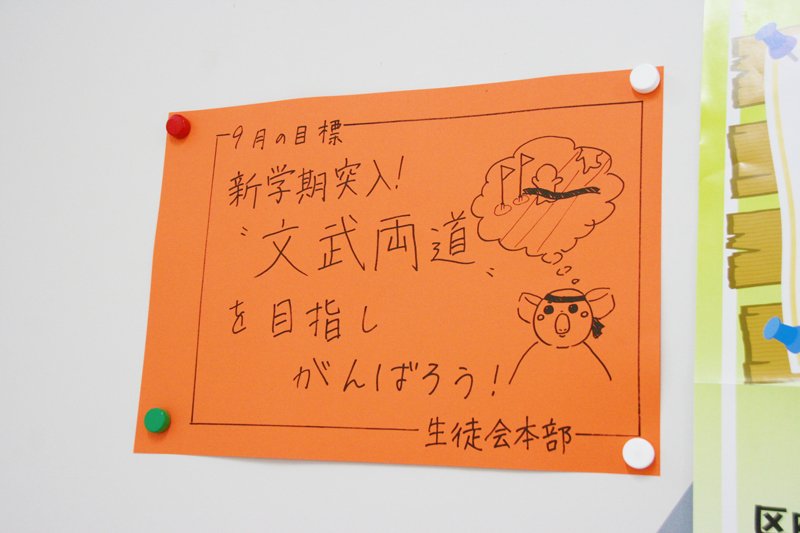 9月の目標
新学期突入!
〝文武両道〟
を目指し
がんばろう!
生徒会本部
区